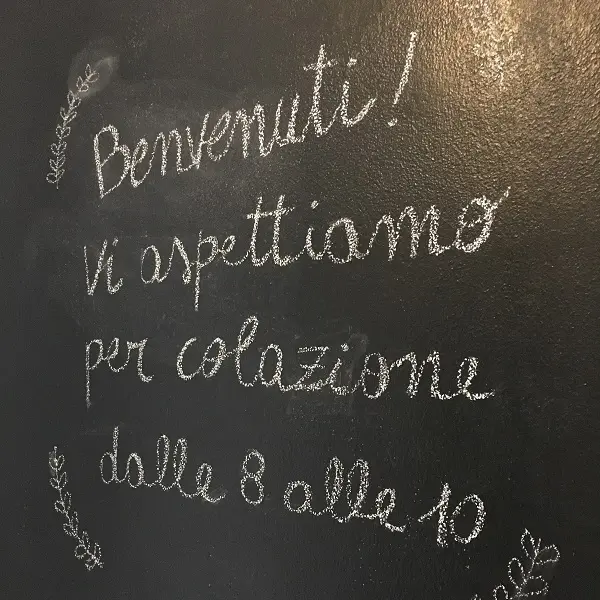 Benvenuti!
Vi aspettiamo
per colazione
dalle 8 alle 10